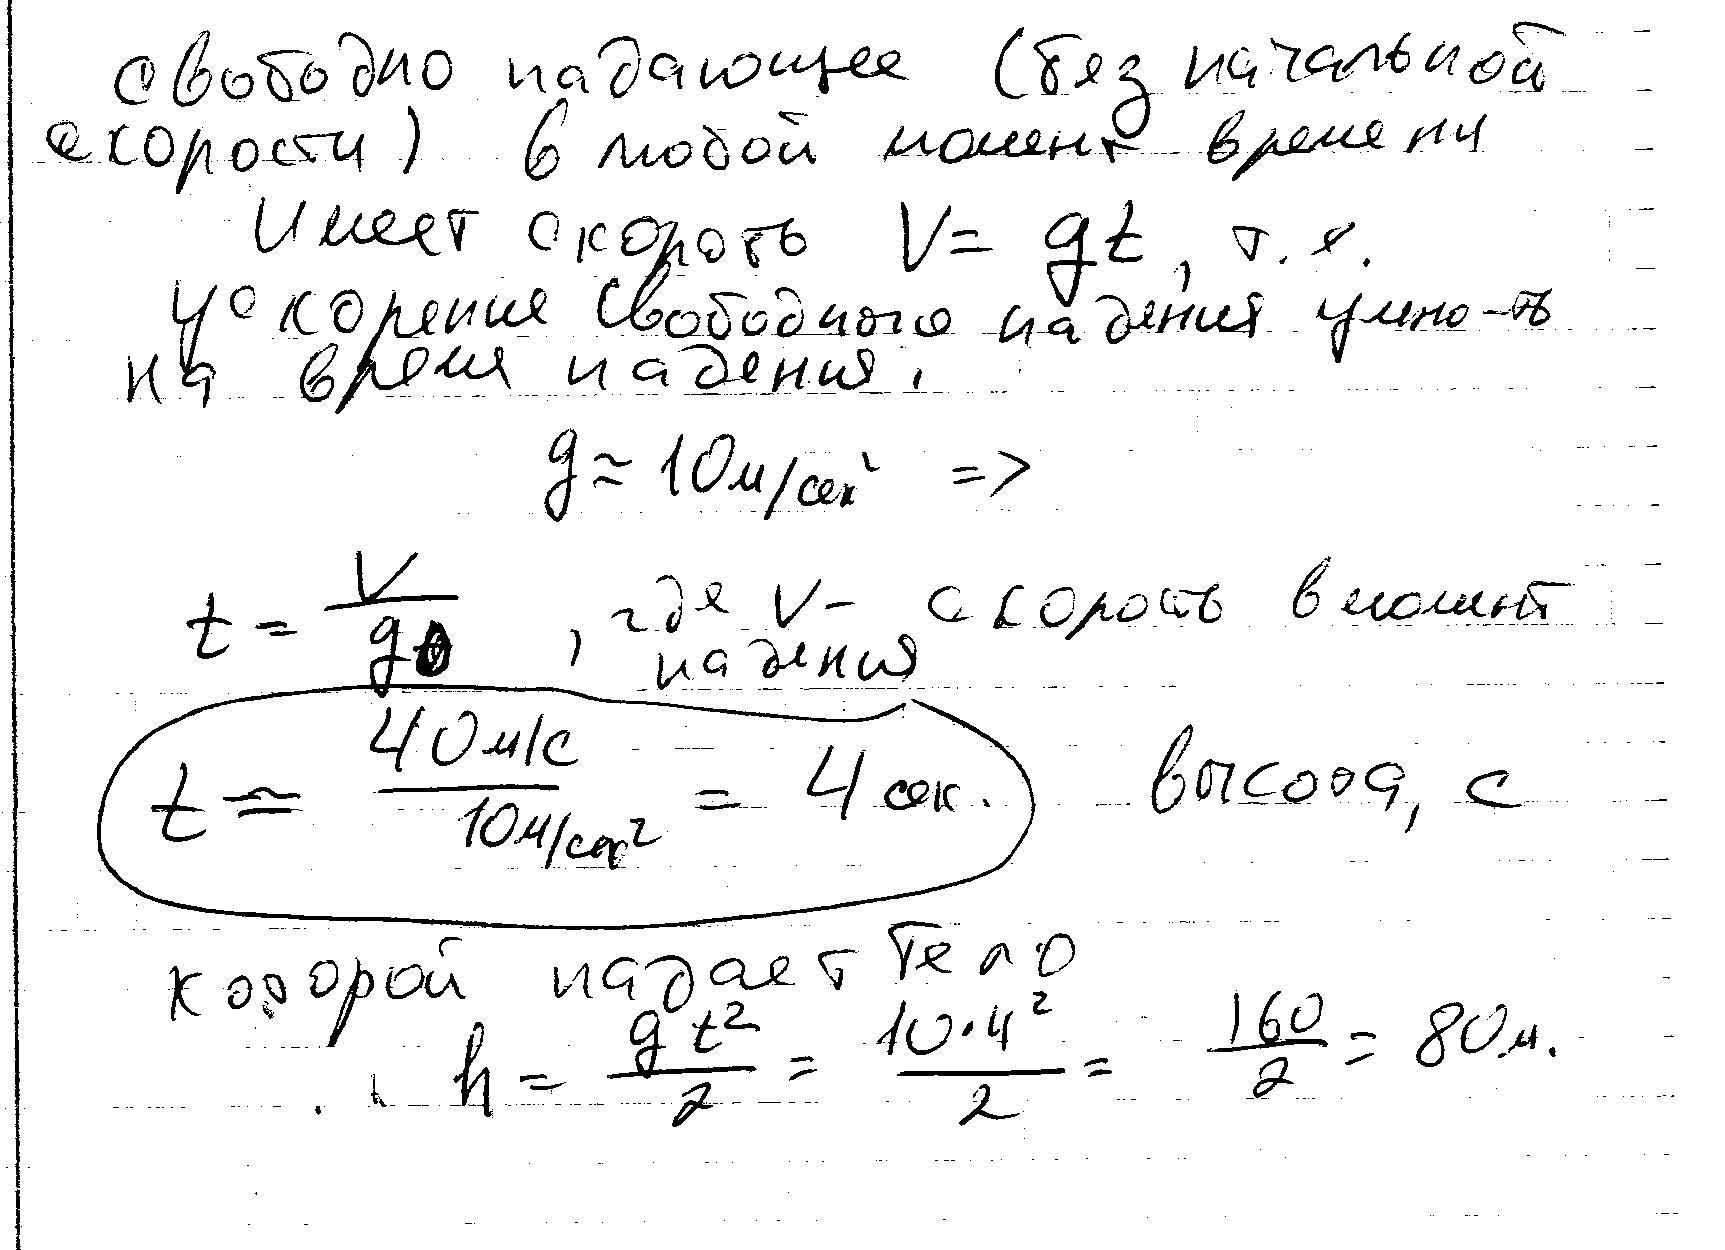 свободно падающее (без начальной
скорости) в любой момент времени
имеет скорость V = gt, т.е.
ускорение свободного падения умно-ть
на время падения.
g ≈ 10 м/сек² =>
t = V/g , где V – скорость в момент
падения
t ≈ 40 м/с / 10 м/сек² = 4 сек. высота, с
которой падает тело
h = gt²/2 = 10·4²/2 = 160/2 = 80 м.